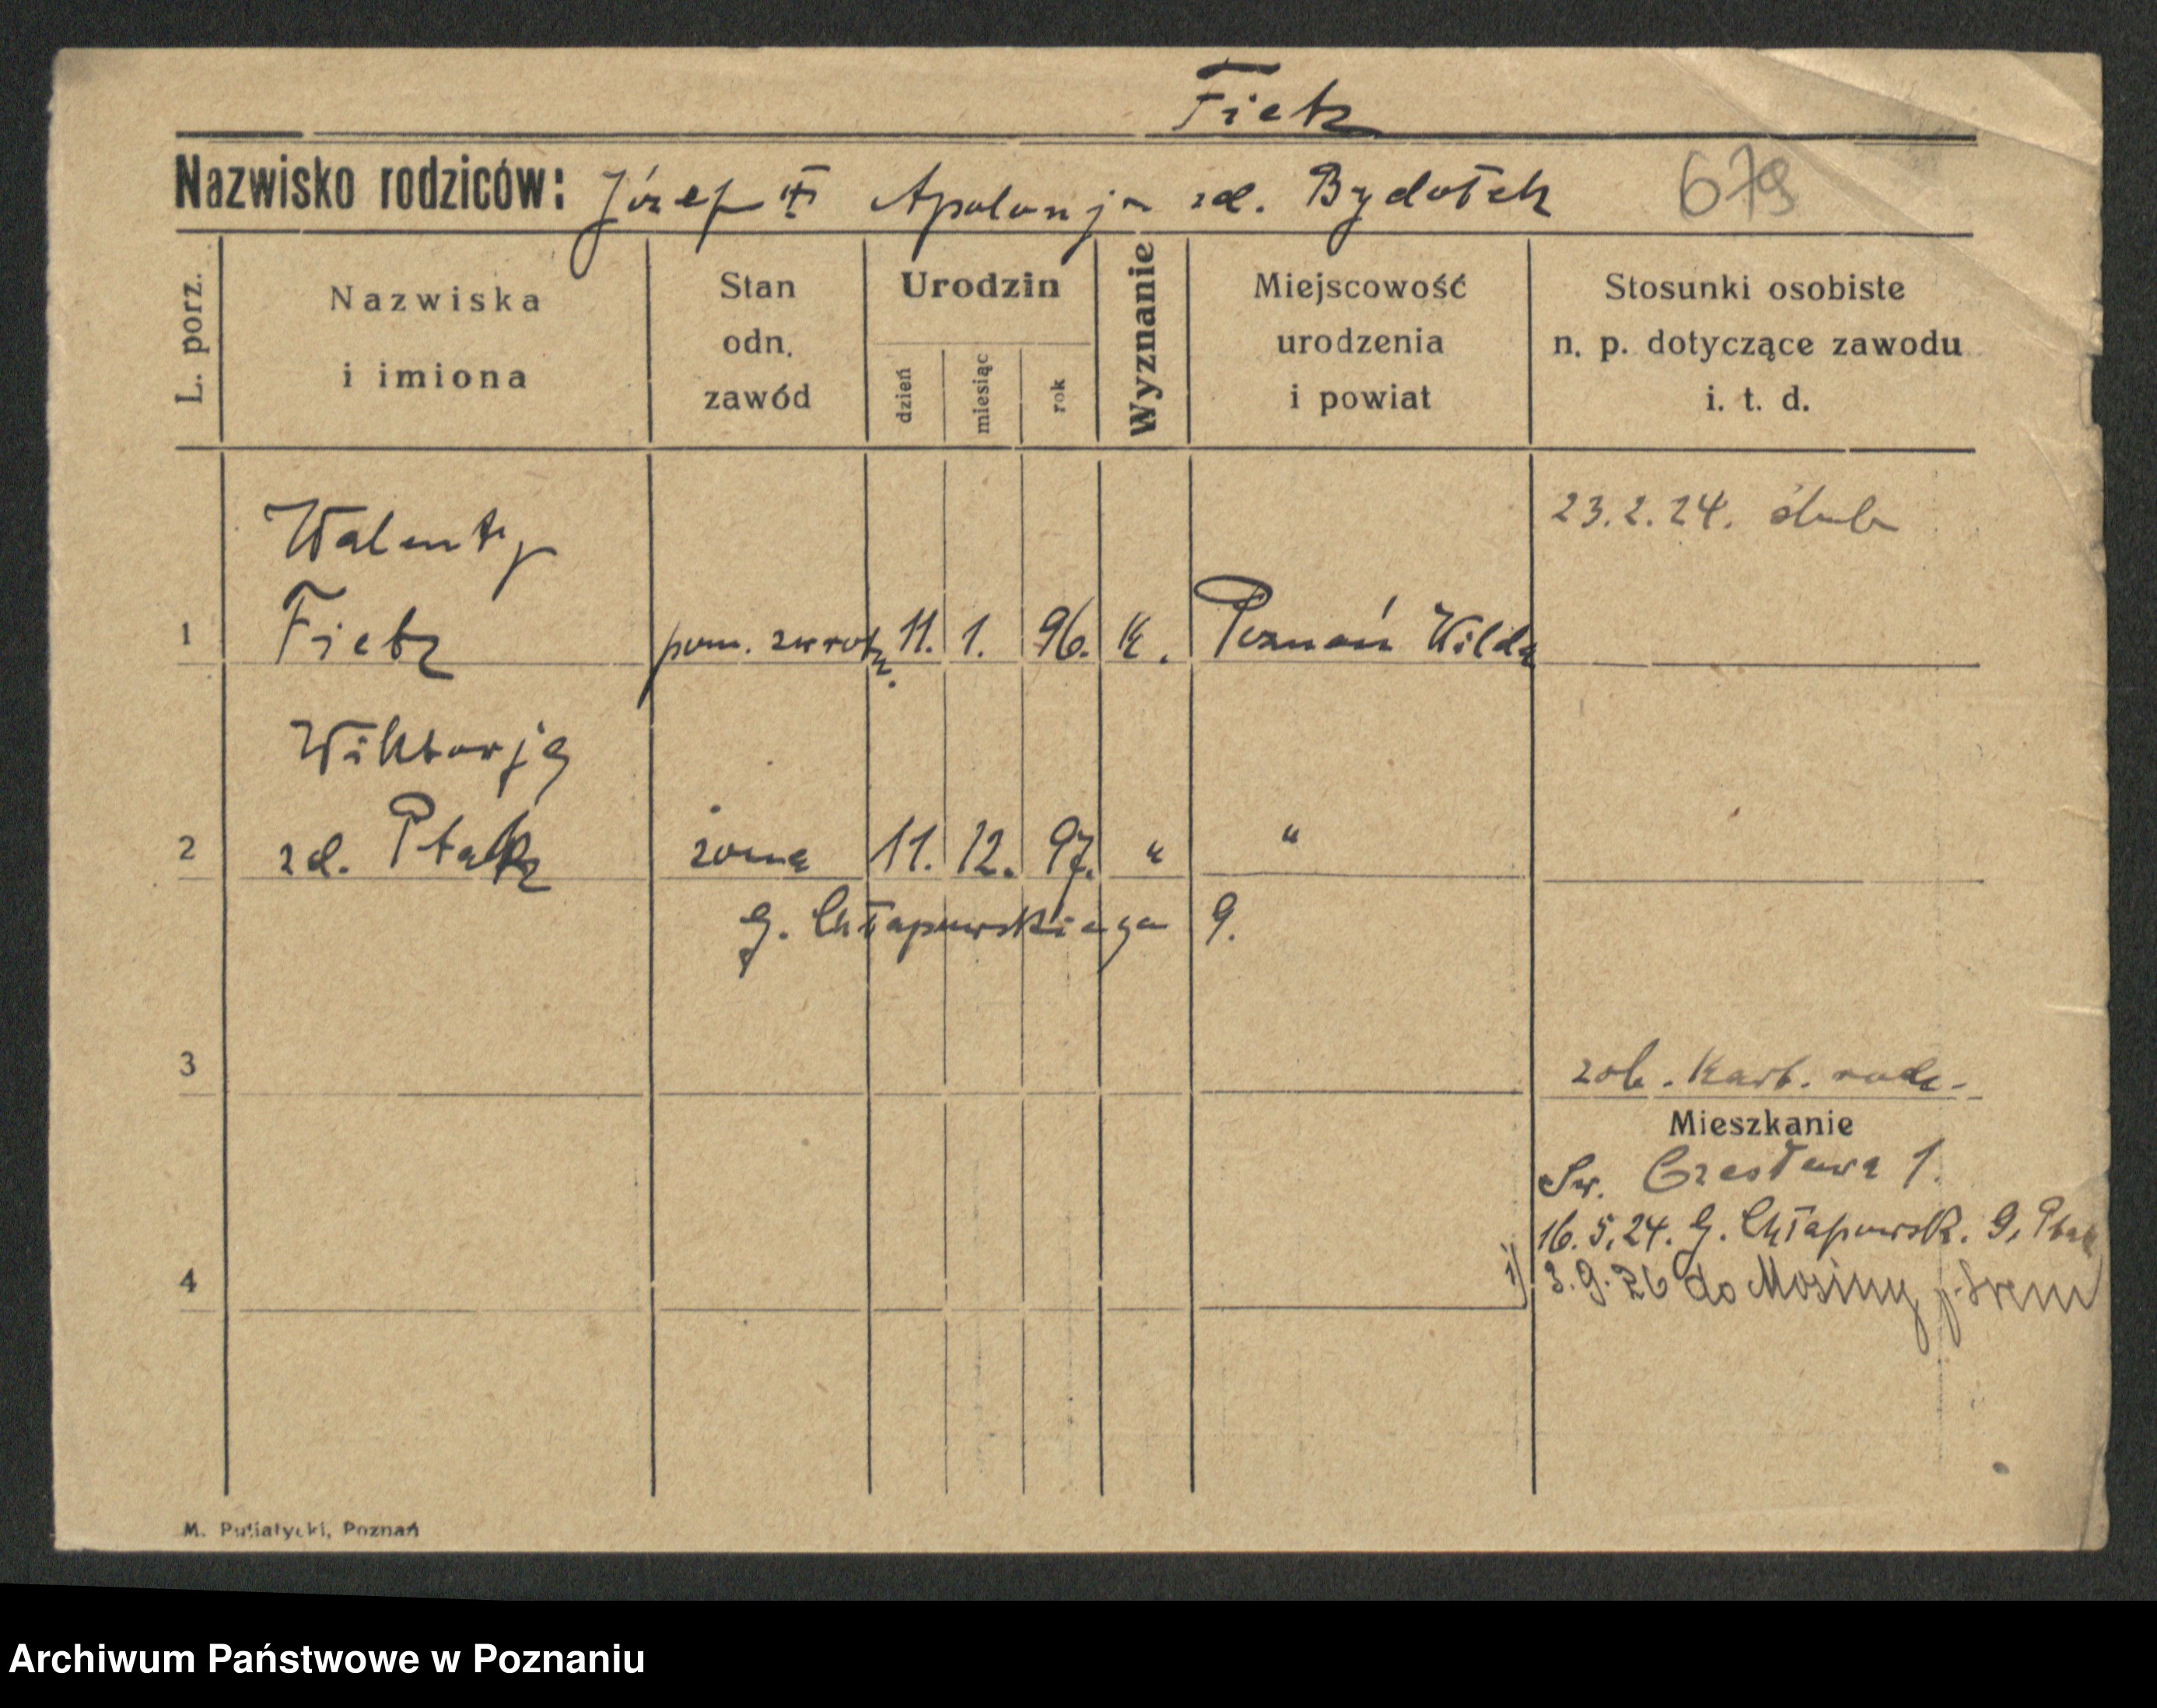 Fietz
Nazwisko rodziców: Józef Apolonja zd. Bydołek 679
L. porz.
Nazwiska
i imiona
Stan
odn.
zawód
Urodzin
dzień
miesiąc
rok
Wyznanie
Miejscowość
urodzenia
i powiat
Stosunki osobiste
n. p. dotyczące zawodu
i. t. d.
23.2.24. ślub
Walenty
1 Fietz pom. zwrotn. 11. 1. 96. k. Poznań Wilda
Wiktorja
2 zd. Ptak żona 11. 12. 97. " "
G. Chłapowskiego 9.
3 zob. kart. rodz.
Mieszkanie
Św. Czesława 1.
16.5.24. G. Chłapowsk. 9, Ptak
4 1) 3.9.26 do Mosiny p. Śrem
M. Putiatycki, Poznań
Archiwum Państwowe w Poznaniu